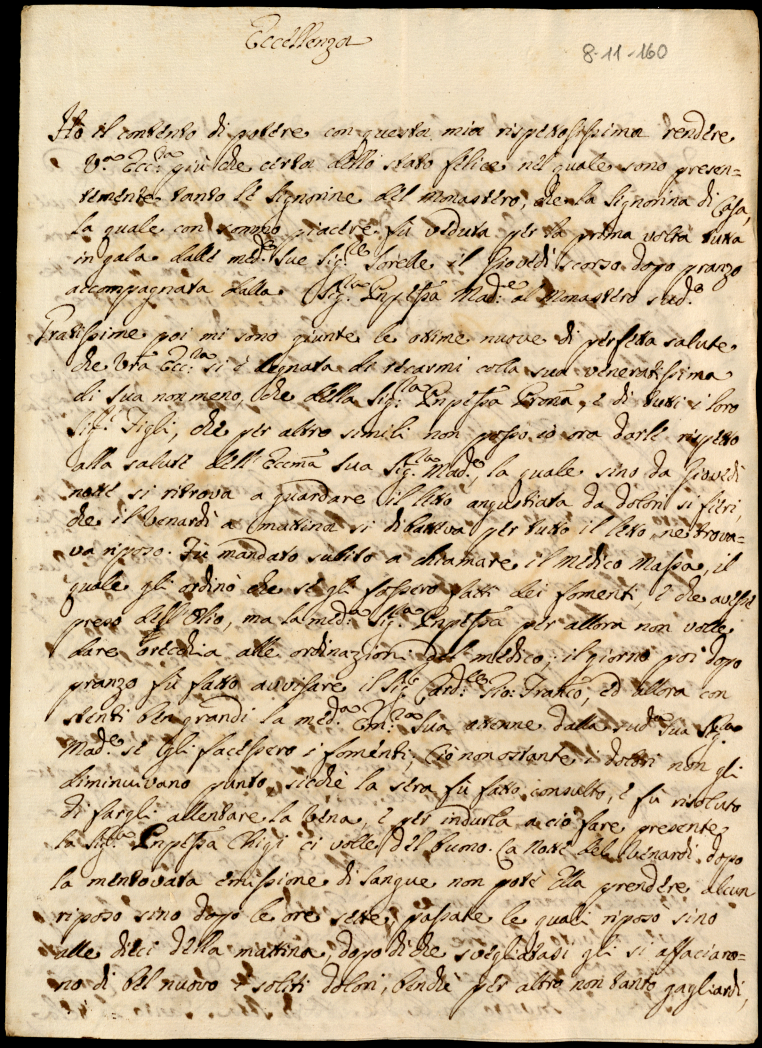 Eccellenza
8-11-160
Ho il contento di potere con questa mia rispettosissima rendere
V.ª Ecc.ª più che certa dello stato felice nel quale sono presen=
temente tanto le Signorine del Monastero, che la Signorina di Casa,
la quale con sommo piacere fù veduta per la prima volta tutta
in gala dalle med.e sue Sig.re Sorelle il Giovedì scorso dopo pranzo
accompagnata dalla Sig.ra Pnpessa Mad.e al Monastero sud.o
Gratissime poi mi sono giunte le ottime nuove di perfetta salute
che Vrã Ecc.za si è degnata di recarmi colla sua veneratissima
di sua non meno, che della Sig.ra Pnpessa Pronã, e di tutti i loro
Sig.i Figli, che per altro simili non posso io ora darle rispetto
alla salute dell'Eccmã sua Sig.ra Mad.e, la quale sino da Giovedì
notte si ritrova a guardare il letto angustiata da dolori si fieri,
che il Venardì a mattina si dibatteva per tutto il letto, ne trova=
va riposo. Fù mandato subito a chiamare il Medico Massa, il
quale gli ordinò che se gli fassero fatti dei fomenti, e che avesse
preso dell'Olio, ma la med.ª Sig.ra Pnpessa per allora non volle
dare orecchia alle ordinazioni del medico; il giorno poi dopo
pranzo fù fatto avvisare il Sig.r Card.le Gio: Franco, ed allora con
stenti ben grandi la med.ª Em.za Sua ottenne dalla sud.ª Sua Sig.ra
Mad.e se gli facessero i fomenti, Ciò nonostante i dolori non gli
diminuivano punto, sicchè la sera fù fatto consulto, e fù risoluto
di fargli allentare la Vena, e per indurla a ciò fare presente
la Sig.ra Pnpessa Chigi ci volle del buono. La Notte del Venardì dopo
la mentovata emissione di sangue non potè Ella prendere alcun
riposo sino dopo le ore sette, passate le quali riposò sino
alle dieci della mattina, dopo di che svegliatasi gli si affaciaro=
no di bel nuovo i soliti dolori, benchè per altro non tanto gagliardi,